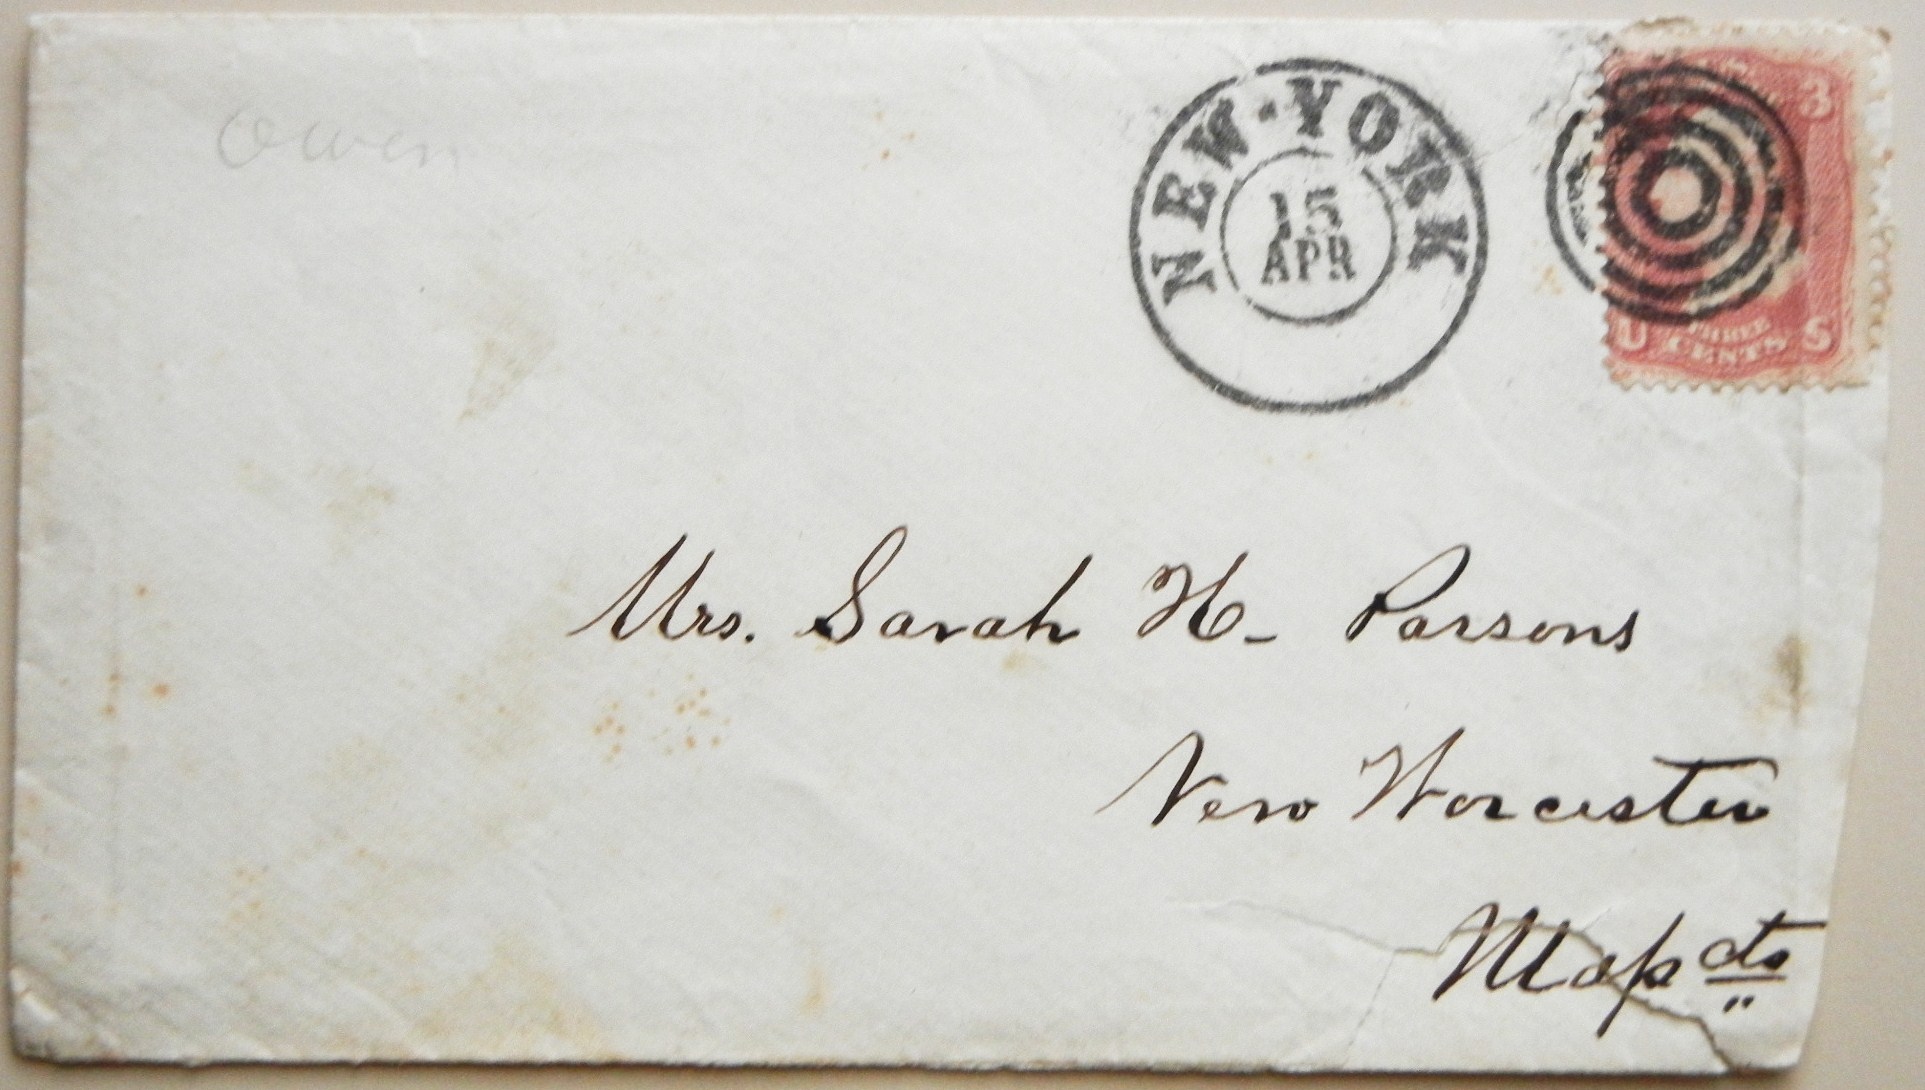 Owen
NEW-YORK
15
APR
3
U S
THREE
CENTS
Mrs. Sarah H. Parsons
New Worcester
Massctts